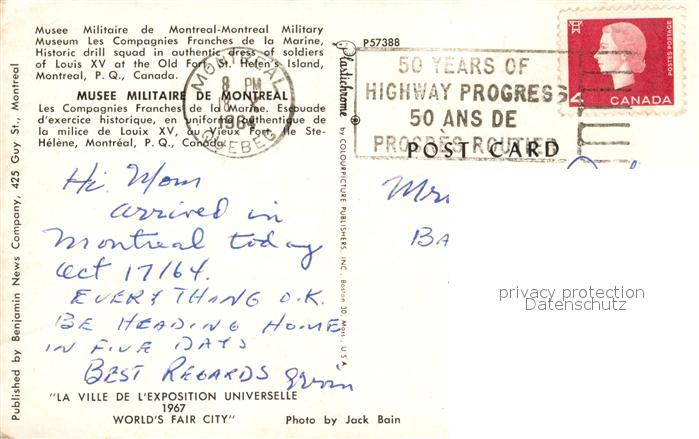 Musee Militaire de Montreal-Montreal Military
Museum Les Compagnies Franches de la Marine,
Historic drill squad in authentic dress of soldiers
of Louis XV at the Old Fort St. Helen's Island,
Montreal, P. Q., Canada.
MUSEE MILITAIRE DE MONTREAL
Les Compagnies Franches de la Marine. Escouade
d'exercice historique, en uniforme authentique de
la milice de Louix XV, au Vieux Fort, Ile Ste-
Hélène, Montréal, P. Q., Canada.
Hi Mom
arrived in
Montreal today
Oct 17/64.
EVERYTHANG O.K.
BE HEADING HOME
IN FIVE DAYS
BEST REGARDS
"LA VILLE DE L'EXPOSITION UNIVERSELLE
1967
WORLD'S FAIR CITY"
Photo by Jack Bain
Published by Benjamin News Company, 425 Guy St., Montreal
Plastichrome by COLOURPICTURE PUBLISHERS, INC., Boston 30, Mass., U.S.A.
P57388
MONTREAL
8 PM
1964
QUEBEC
50 YEARS OF
HIGHWAY PROGRESS
50 ANS DE
PROGRÈS ROUTIER
4 CANADA
POSTES POSTAGE
POST CARD
Mrs
BA
privacy protection
Datenschutz